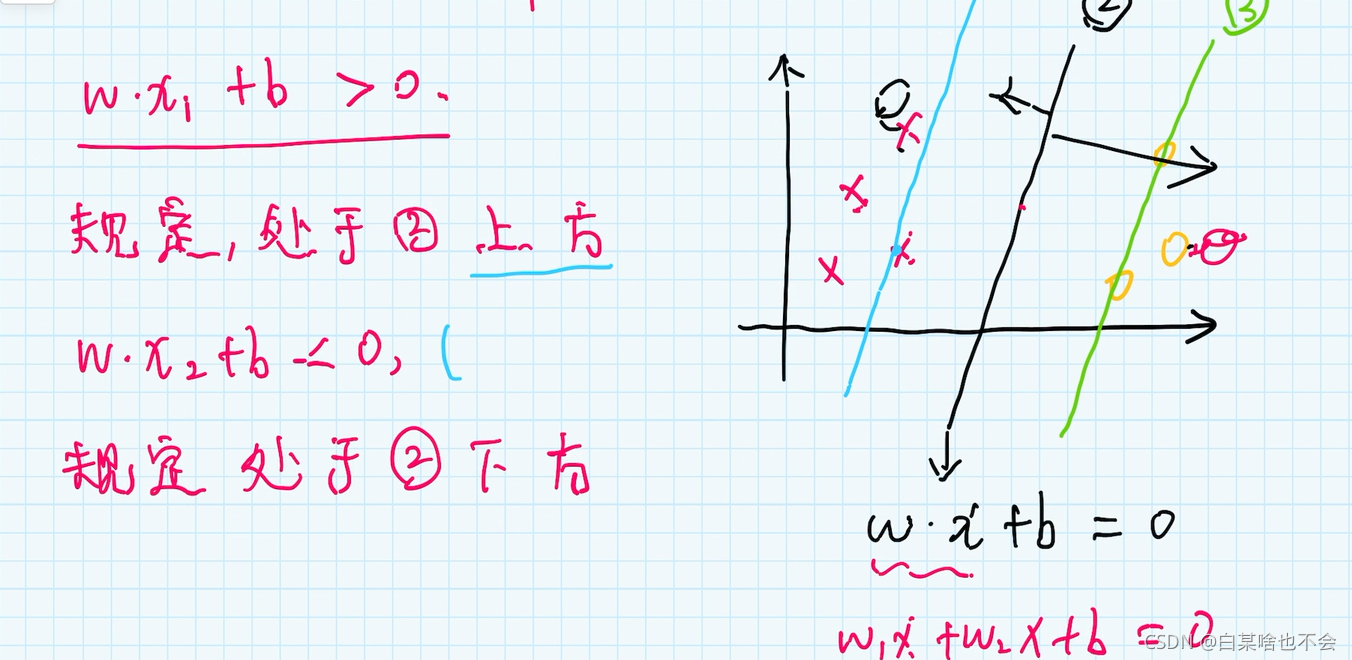 w·x₁ + b > 0.
规定, 处于②上方
w·x₂+b < 0, (
规定 处于②下方
②
③
w·x+b = 0
w₁x +w₂x+b = 0
CSDN @白某啥也不会